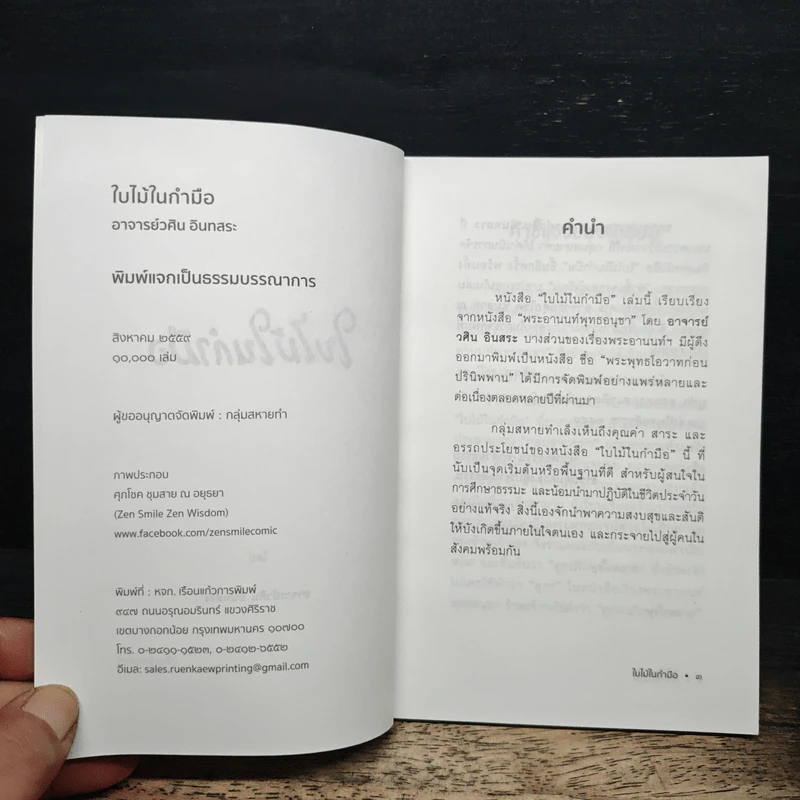 ใบไม้ในกำมือ
อาจารย์วศิน อินทสระ
พิมพ์แจกเป็นธรรมบรรณาการ
สิงหาคม ๒๕๕๙
๑๐,๐๐๐ เล่ม
ผู้ขออนุญาตจัดพิมพ์ : กลุ่มสหายทำ
ภาพประกอบ
ศุภโชค ชุมสาย ณ อยุธยา
(Zen Smile Zen Wisdom)
www.facebook.com/zensmilecomic
พิมพ์ที่ : หจก. เรือนแก้วการพิมพ์
๙๔๗ ถนนอรุณอมรินทร์ แขวงศิริราช
เขตบางกอกน้อย กรุงเทพมหานคร ๑๐๗๐๐
โทร. ๐-๒๔๑๑-๑๕๒๓, ๐-๒๔๑๒-๖๕๕๒
อีเมล: sales.ruenkaewprinting@gmail.com
คำนำ
หนังสือ “ใบไม้ในกำมือ” เล่มนี้ เรียบเรียง
จากหนังสือ “พระอานนท์พุทธอนุชา” โดย อาจารย์
วศิน อินสระ บางส่วนของเรื่องพระอานนท์ฯ มีผู้ดึง
ออกมาพิมพ์เป็นหนังสือ ชื่อ “พระพุทธโอวาทก่อน
ปรินิพพาน” ได้มีการจัดพิมพ์อย่างแพร่หลายและ
ต่อเนื่องตลอดหลายปีที่ผ่านมา
กลุ่มสหายทำเล็งเห็นถึงคุณค่า สาระ และ
อรรถประโยชน์ของหนังสือ “ใบไม้ในกำมือ” นี้ ที่
นับเป็นจุดเริ่มต้นหรือพื้นฐานที่ดี สำหรับผู้สนใจใน
การศึกษาธรรมะ และน้อมนำมาปฏิบัติในชีวิตประจำวัน
อย่างแท้จริง สิ่งนี้เองจักนำพาความสงบสุขและสันติ
ให้บังเกิดขึ้นภายในใจตนเอง และกระจายไปสู่ผู้คนใน
สังคมพร้อมกัน
ใบไม้ในกำมือ • ๓